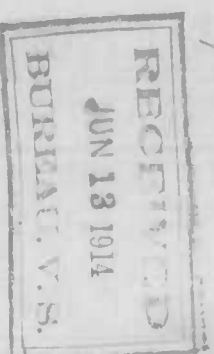 RECEIVED
JUN 13 1914
BUREAU. V. S.